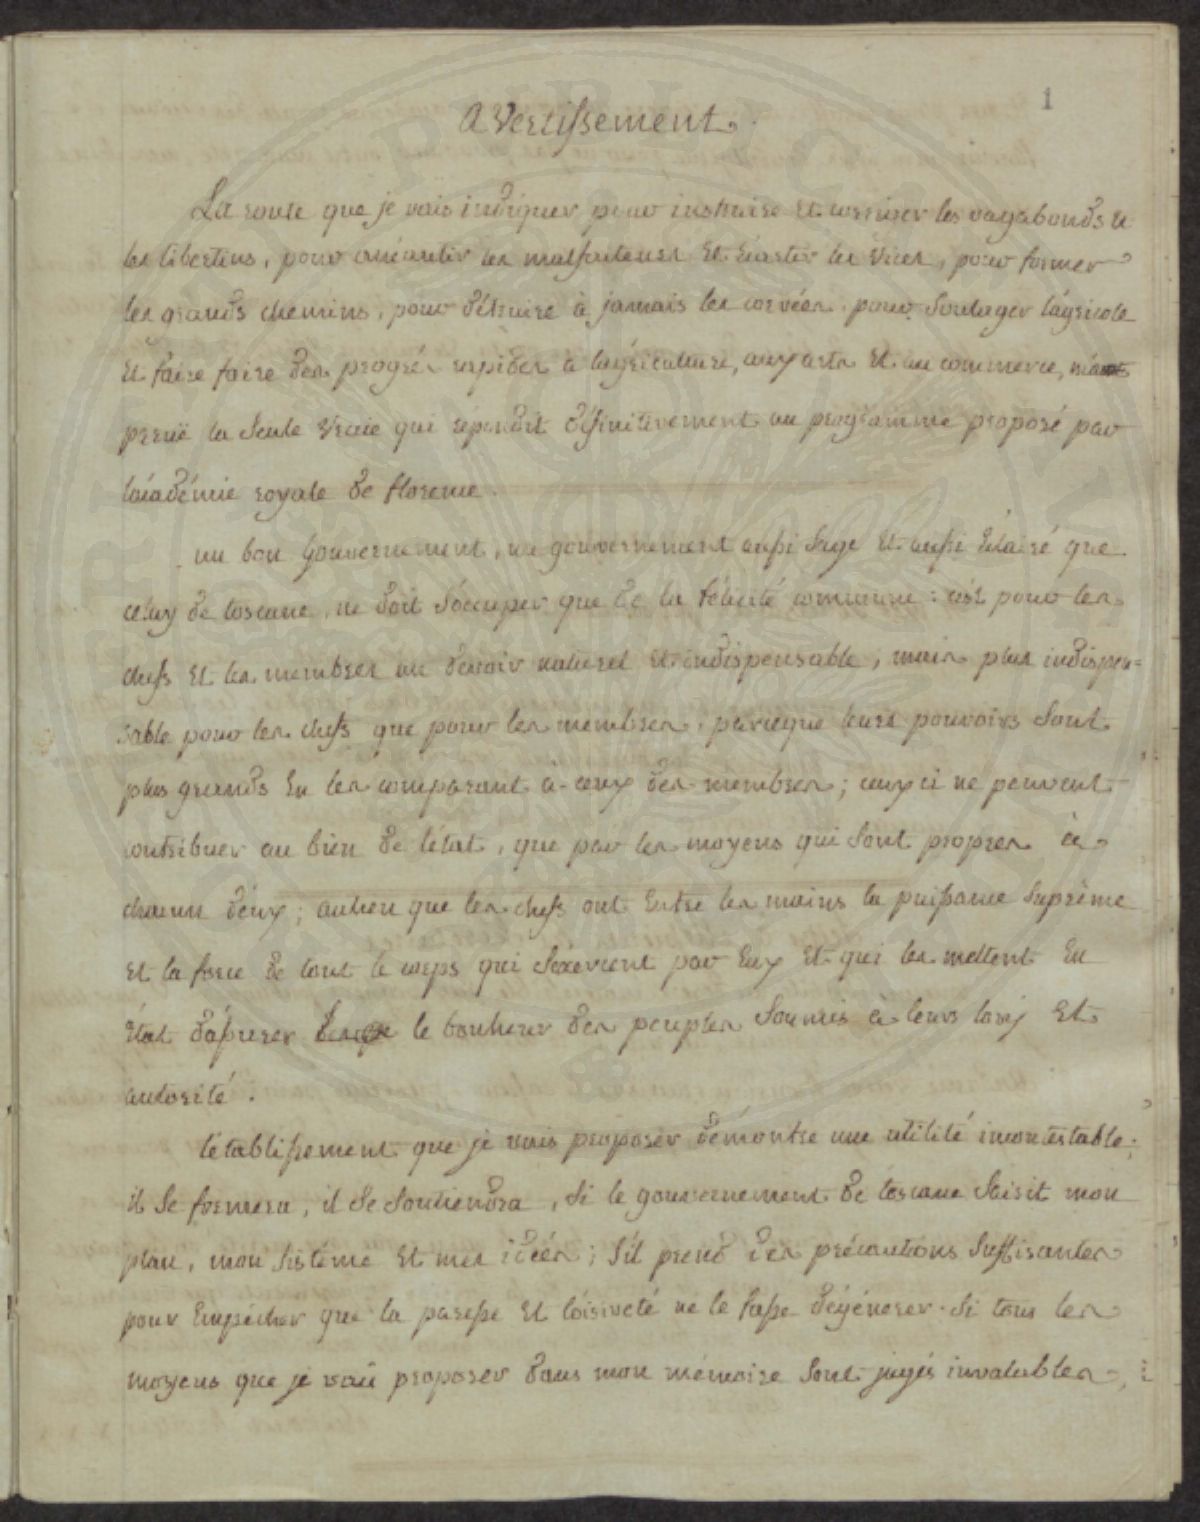 1
avertissement.
La route que je vais indiquer pour instruire et corriger les vagabonds et
les libertins, pour anéantir les malfaiteurs et écarter les vices, pour former
les grands chemins, pour détruire à jamais les corvées, pour soulager l'agricole
et faire faire des progrés rapides à l'agriculture, aux arts et au commerce,
la seule vraie qui répondit définitivement au programme proposé par
l'académie royale de florence.
un bon gouvernement, un gouvernement aussi sage et aussi éclairé que
celuy de toscane, ne doit s'occuper que de la félicité commune: c'est pour les
chefs et les membres un devoir naturel et indispensable, mais plus indispen=
sable pour les chefs que pour les membres, parceque leurs pouvoirs sont
plus grands en les comparant à ceux des membres; ceux ci ne peuvent
contribuer au bien de l'état, que par les moyens qui sont propres à
chacun d'eux; aulieu que les chefs ont entre les mains la puissance suprème
et la force de tout le corps qui s'exercent par eux et qui les mettent en
état d'assurer le bonheur des peuples soumis à leurs loix et
autorité.
l'établissement que je vais proposer démontre une utilité incontestable;
il se formera, il se soutiendra, si le gouvernement de toscane saisit mon
plan, mon sistéme et mes idées; s'il prend des précautions suffisantes
pour empécher que la paresse et l'oisiveté ne le fasse dégénerer. si tous les
moyens que je vais proposer dans mon mémoire sont jugés invalables,